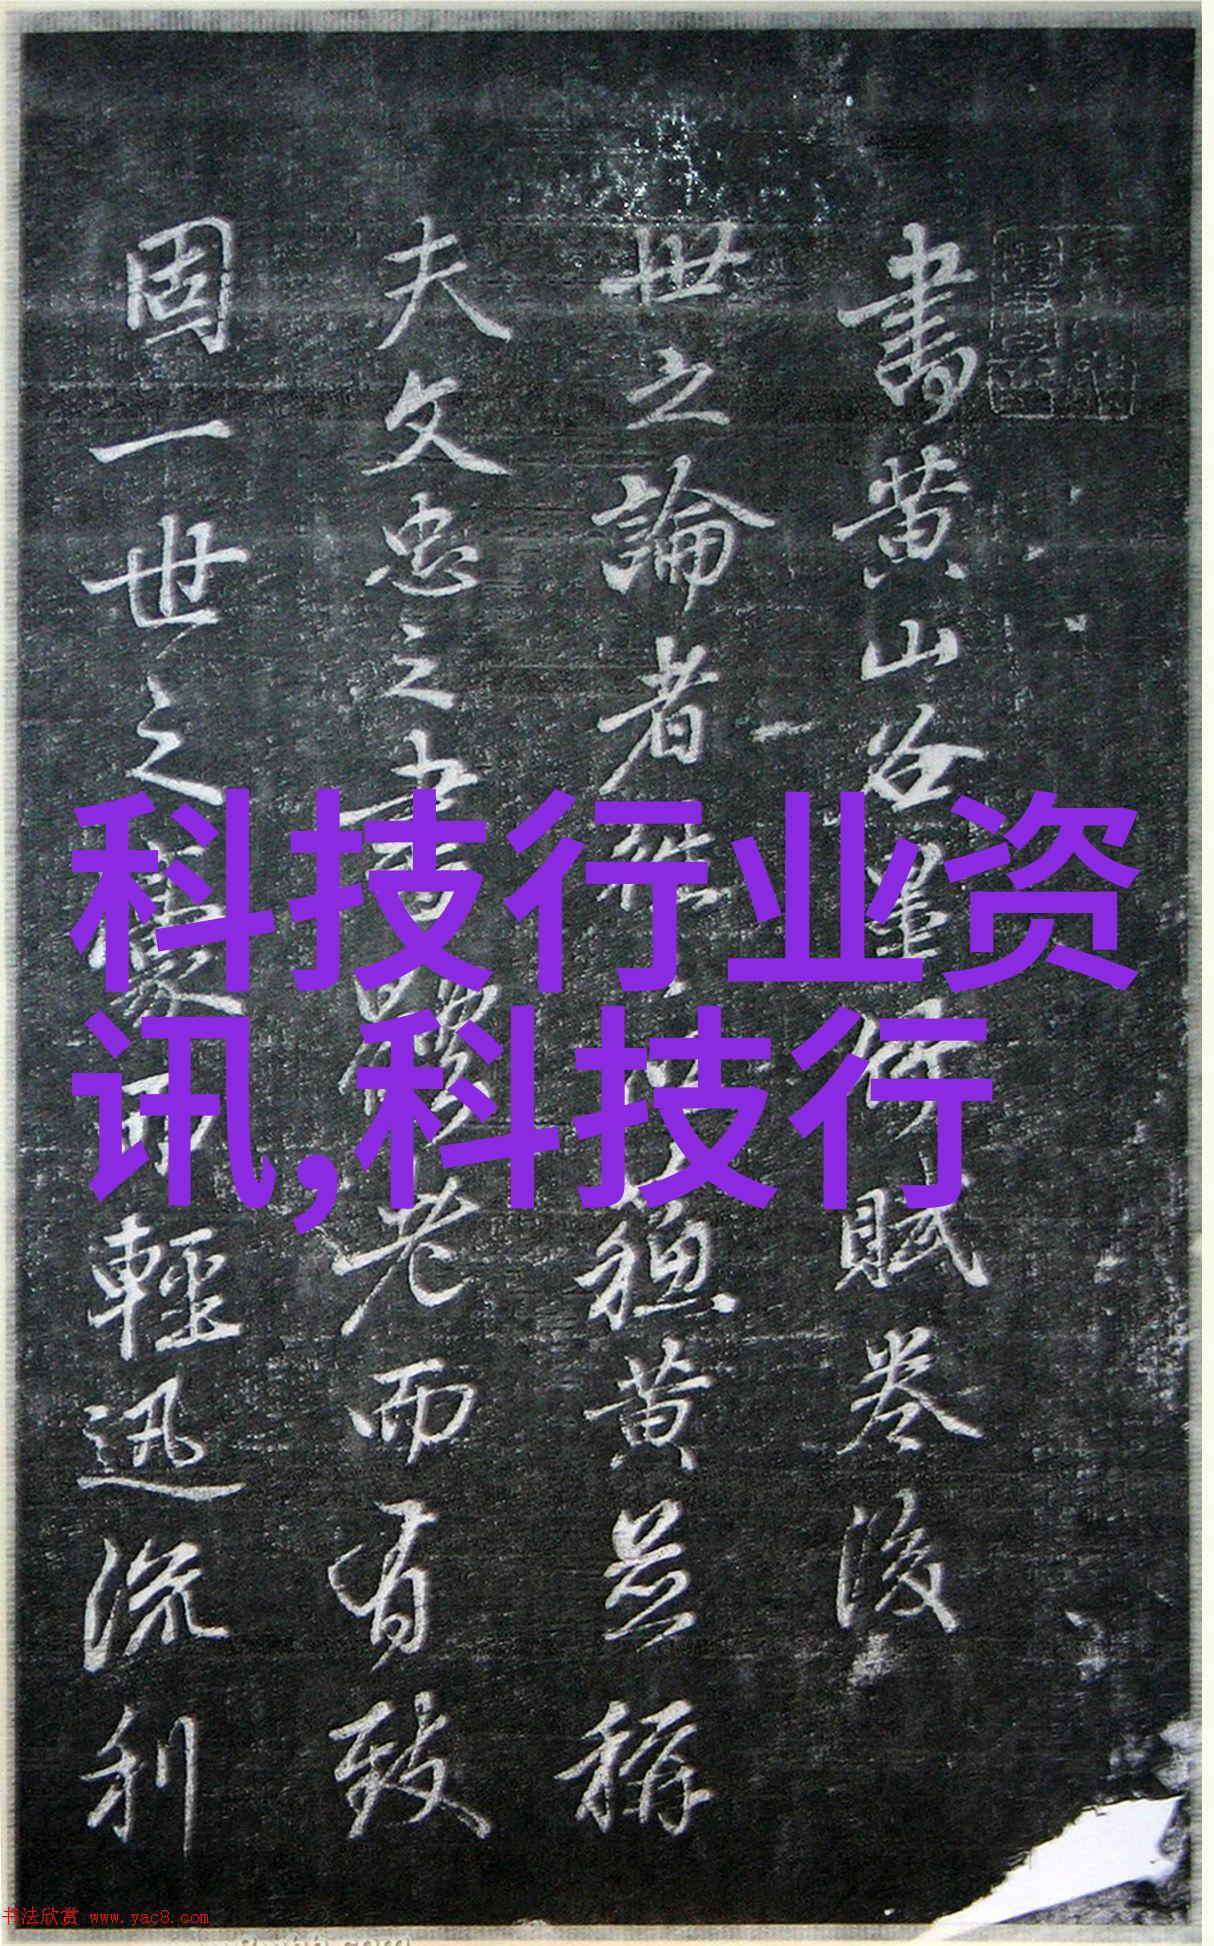 書黄山谷賦卷後
世之論者黄並稱
夫文忠之書老而有致
固一世之輕迅流利
科技行业资
讯,科技行
书法欣赏 www.yac8.com